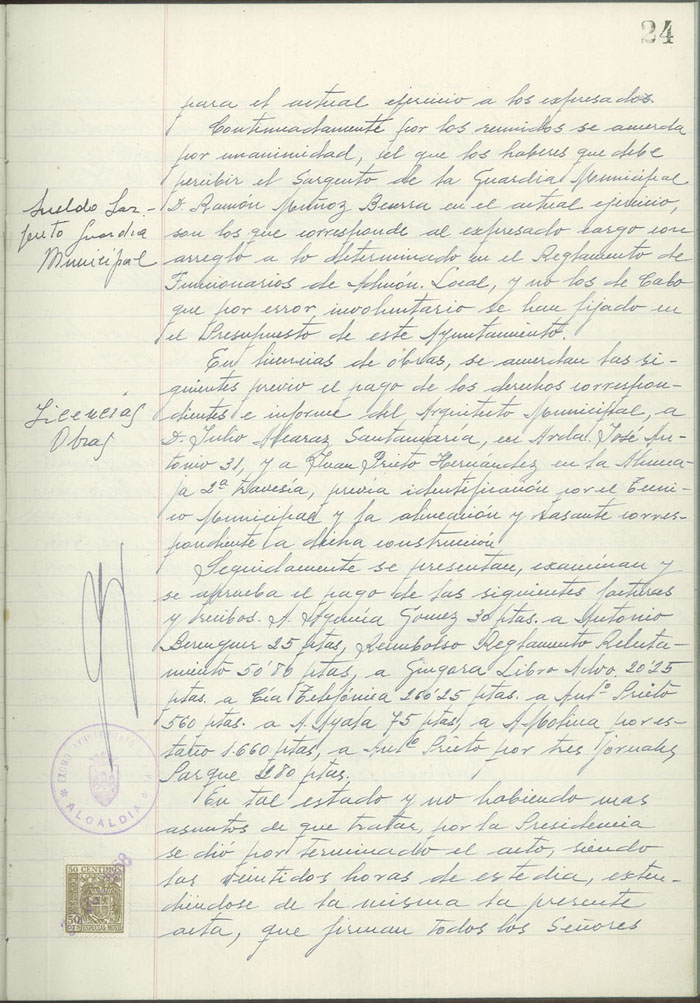 24
para el actual ejercicio a los expresados
Continuadamente por los reunidos se acuerda
por unanimidad, el que los haberes que debe
percibir el Sargento de la Guardia Municipal
Sueldo Sar-
gento Guardia
Municipal
D. Ramón Muñoz Becerra en el actual ejercicio,
son los que corresponde al expresado cargo con
arreglo a lo determinado en el Reglamento de
Funcionarios de Admón. Local, y no los de Cabo
que por error involuntario se han fijado en
el Presupuesto de este Ayuntamiento.
En licencias de obras, se acuerdan las si-
guientes previo el pago de los derechos correspon-
Licencias
Obras
dientes e informe del Arquitecto Municipal, a
D. Julio Alcaraz Santamaría, en Avda. José An-
tonio 31, y a Juan Prieto Hernández en la
2ª travesía, previa identificación por el Técni-
co Municipal y la alineación y rasante corres-
pondiente a dicha construcción
Seguidamente se presentan, examinan y
se aprueba el pago de las siguientes facturas
y recibos. A Agencia Gomez 30 ptas. a Antonio
Berenguer 25 ptas, Reembolso Reglamento Recluta-
miento 50'86 ptas, a Gingara Libro Advo. 20'25
ptas. a Cía Telefónica 260'25 ptas. a Antº Prieto
560 ptas. a A. Ayala 75 ptas, a A. Molina por es-
tario 1.660 ptas, a Antº Prieto por tres jornales
Parque 280 ptas.
En tal estado y no habiendo mas
asuntos de que tratar, por la Presidencia
se dió por terminado el acto, siendo
las veintidos horas de este dia, exten-
diéndose de la misma la presente
acta, que firman todos los Señores
ALCALDIA
50 CENTIMOS
50
ESPECIAL MOVIL